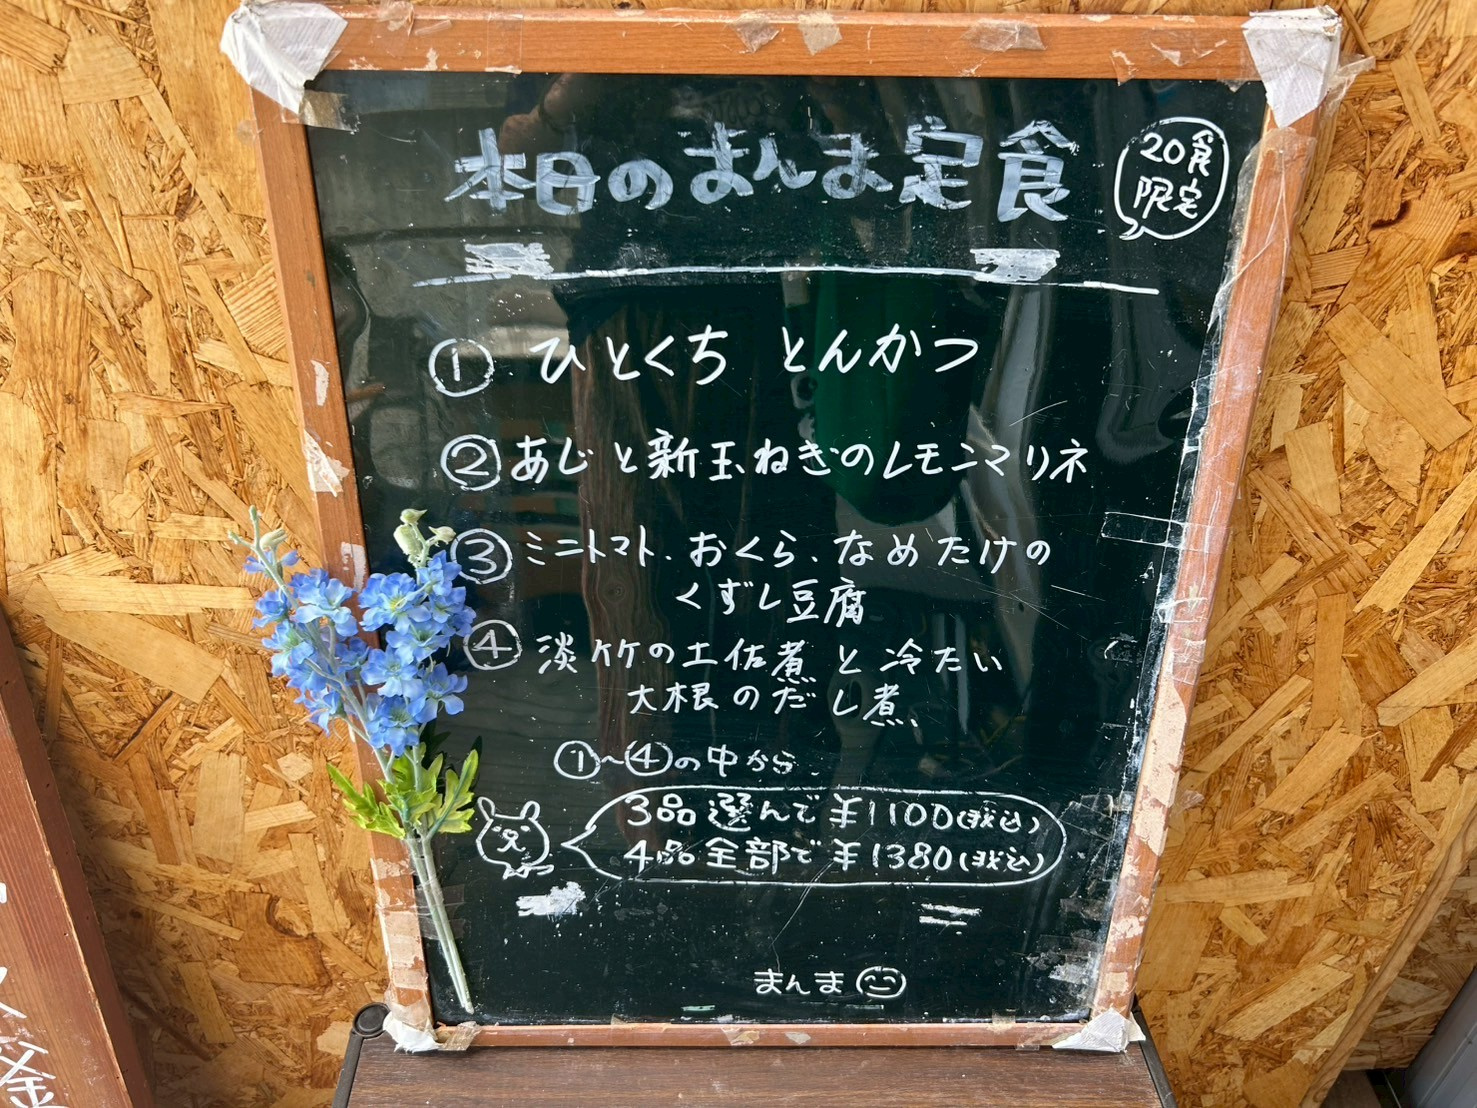 本日のまんま定食
20食
限定
① ひとくち とんかつ
② あじと新玉ねぎのレモンマリネ
③ ミニトマト、おくら、なめたけの
くずし豆腐
④ 淡竹の土佐煮と冷たい
大根のだし煮
①~④の中から
3品選んで¥1100(税込)
4品全部で¥1380(税込)
まんま
釜